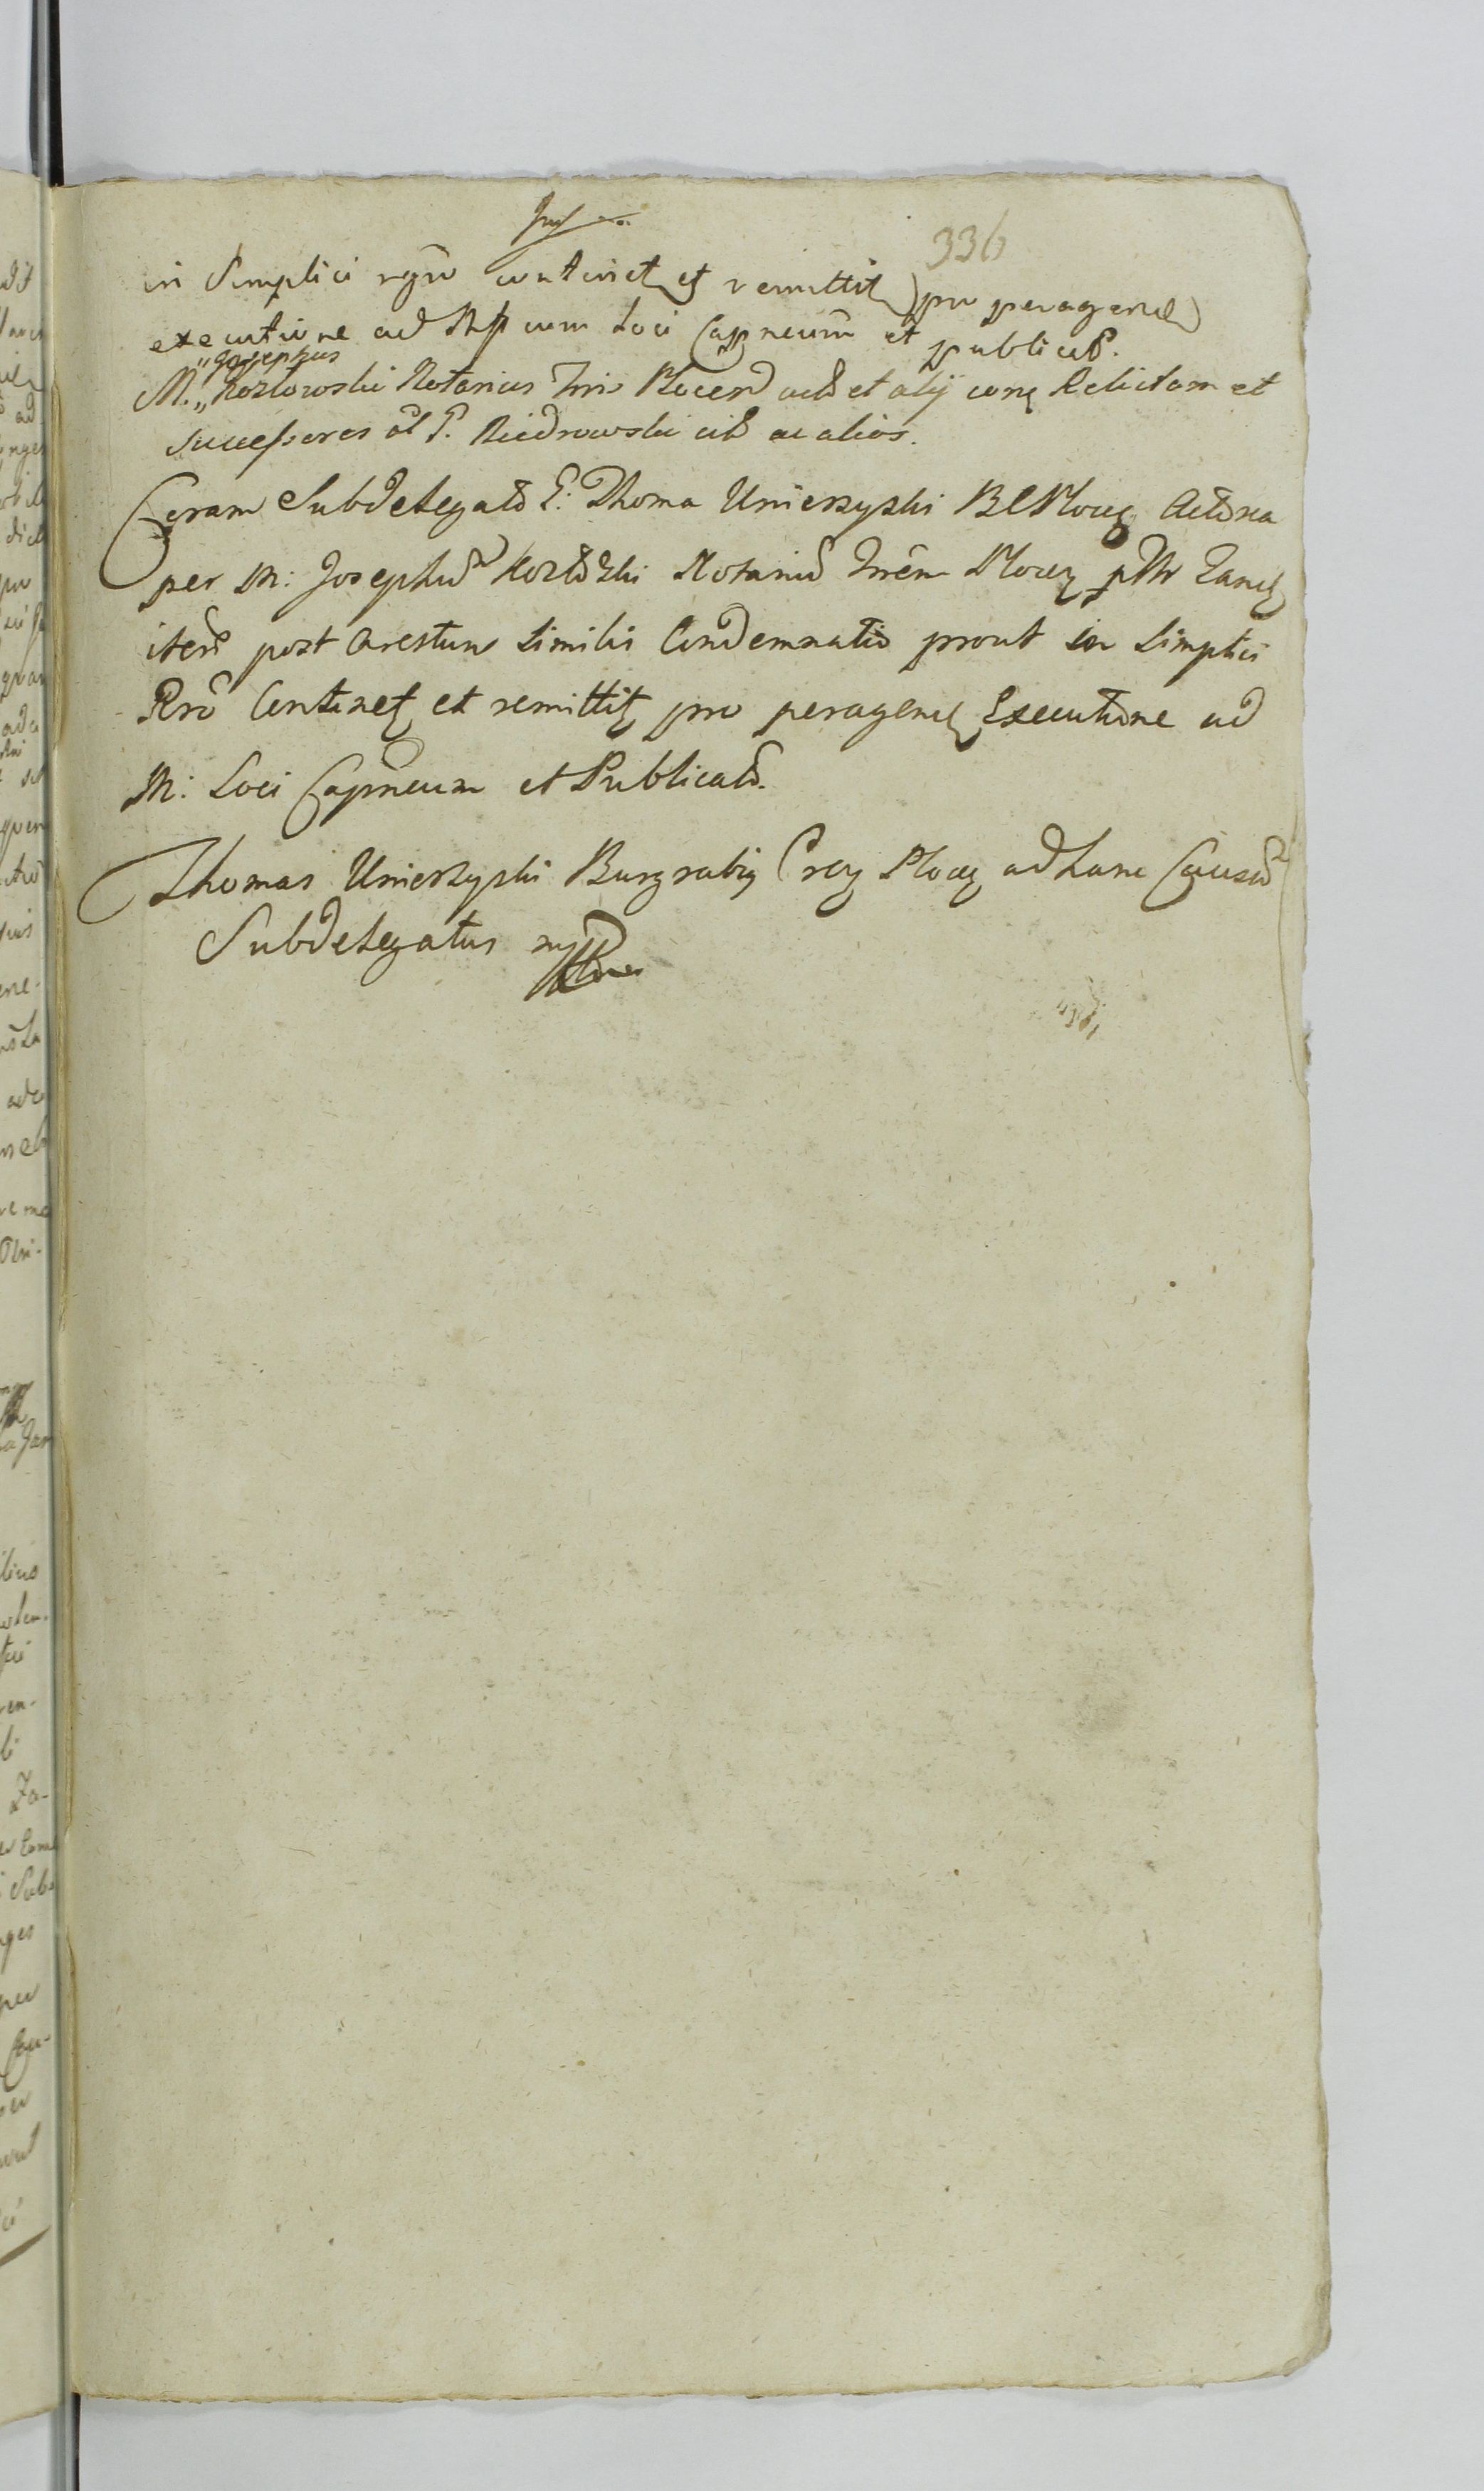 336
in Simplici rgro continet et remittit pro peragend
executione ad Mfcum Loci Capneum et publicat.
Josephus
M. „ Kozlowski Notarius Trris Plocen act et alij conq Relictam et
Successores ol G. Biedrowski cit ac alios.
Coram Subdelegato G: Thoma Unierzyski BCPlocen Actorea
per M: Josephum Kozlowski Notarium Trrem Plocen
item post arestum Similis Condemnatio prout in Simplici
Rro Continet et remittit pro peragend Executione ad
M: Loci Capneum et Publicat.
Thomas Unierzyski Burgrabig Crcy Plocen ad hanc Causam
Subdelegatus mpp